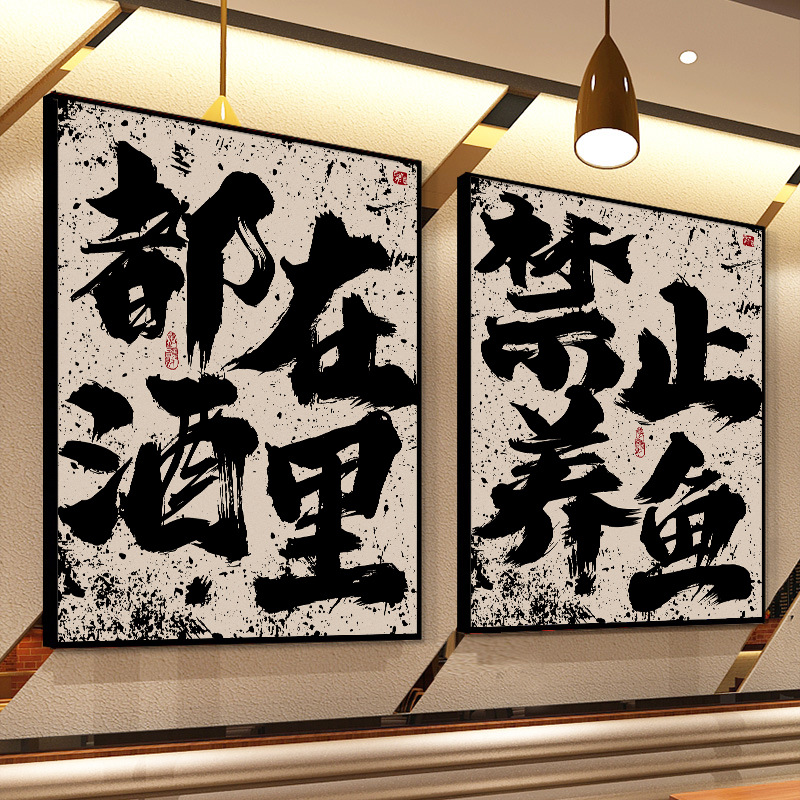 都在
酒里
禁止
养鱼